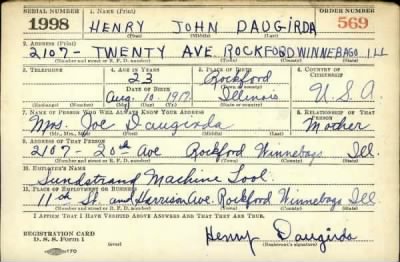 SERIAL NUMBER 1. NAME (Print) ORDER NUMBER
1998 HENRY JOHN DAUGIRDA 569
(First) (Middle) (Last)
2. ADDRESS (Print)
2107- TWENTY AVE. ROCKFORD WINNEBAGO ILL
(Number and street or R. F. D. number) (Town) (County) (State)
3. TELEPHONE 4. AGE IN YEARS 5. PLACE OF BIRTH 6. COUNTRY OF CITIZENSHIP
23 Rockford
DATE OF BIRTH (Town or county)
Aug. 1917 Illinois U.S.A.
(Exchange) (Number) (Mo.) (Day) (Yr.) (State or country)
7. NAME OF PERSON WHO WILL ALWAYS KNOW YOUR ADDRESS 8. RELATIONSHIP OF THAT PERSON
Mrs. Joe Daugirda Mother
(Mr., Mrs., Miss) (First) (Middle) (Last)
9. ADDRESS OF THAT PERSON
2107- 20th Ave Rockford Winnebago Ill.
(Number and street or R. F. D. number) (Town) (County) (State)
10. EMPLOYER'S NAME
Sundstrand Machine Tool.
11. PLACE OF EMPLOYMENT OR BUSINESS
11th St. and Harrison Ave. Rockford Winnebago Ill.
(Number and street or R. F. D. number) (Town) (County) (State)
I AFFIRM THAT I HAVE VERIFIED ABOVE ANSWERS AND THAT THEY ARE TRUE.
REGISTRATION CARD
D. S. S. Form 1 Henry Daugirda
(Registrant's signature)